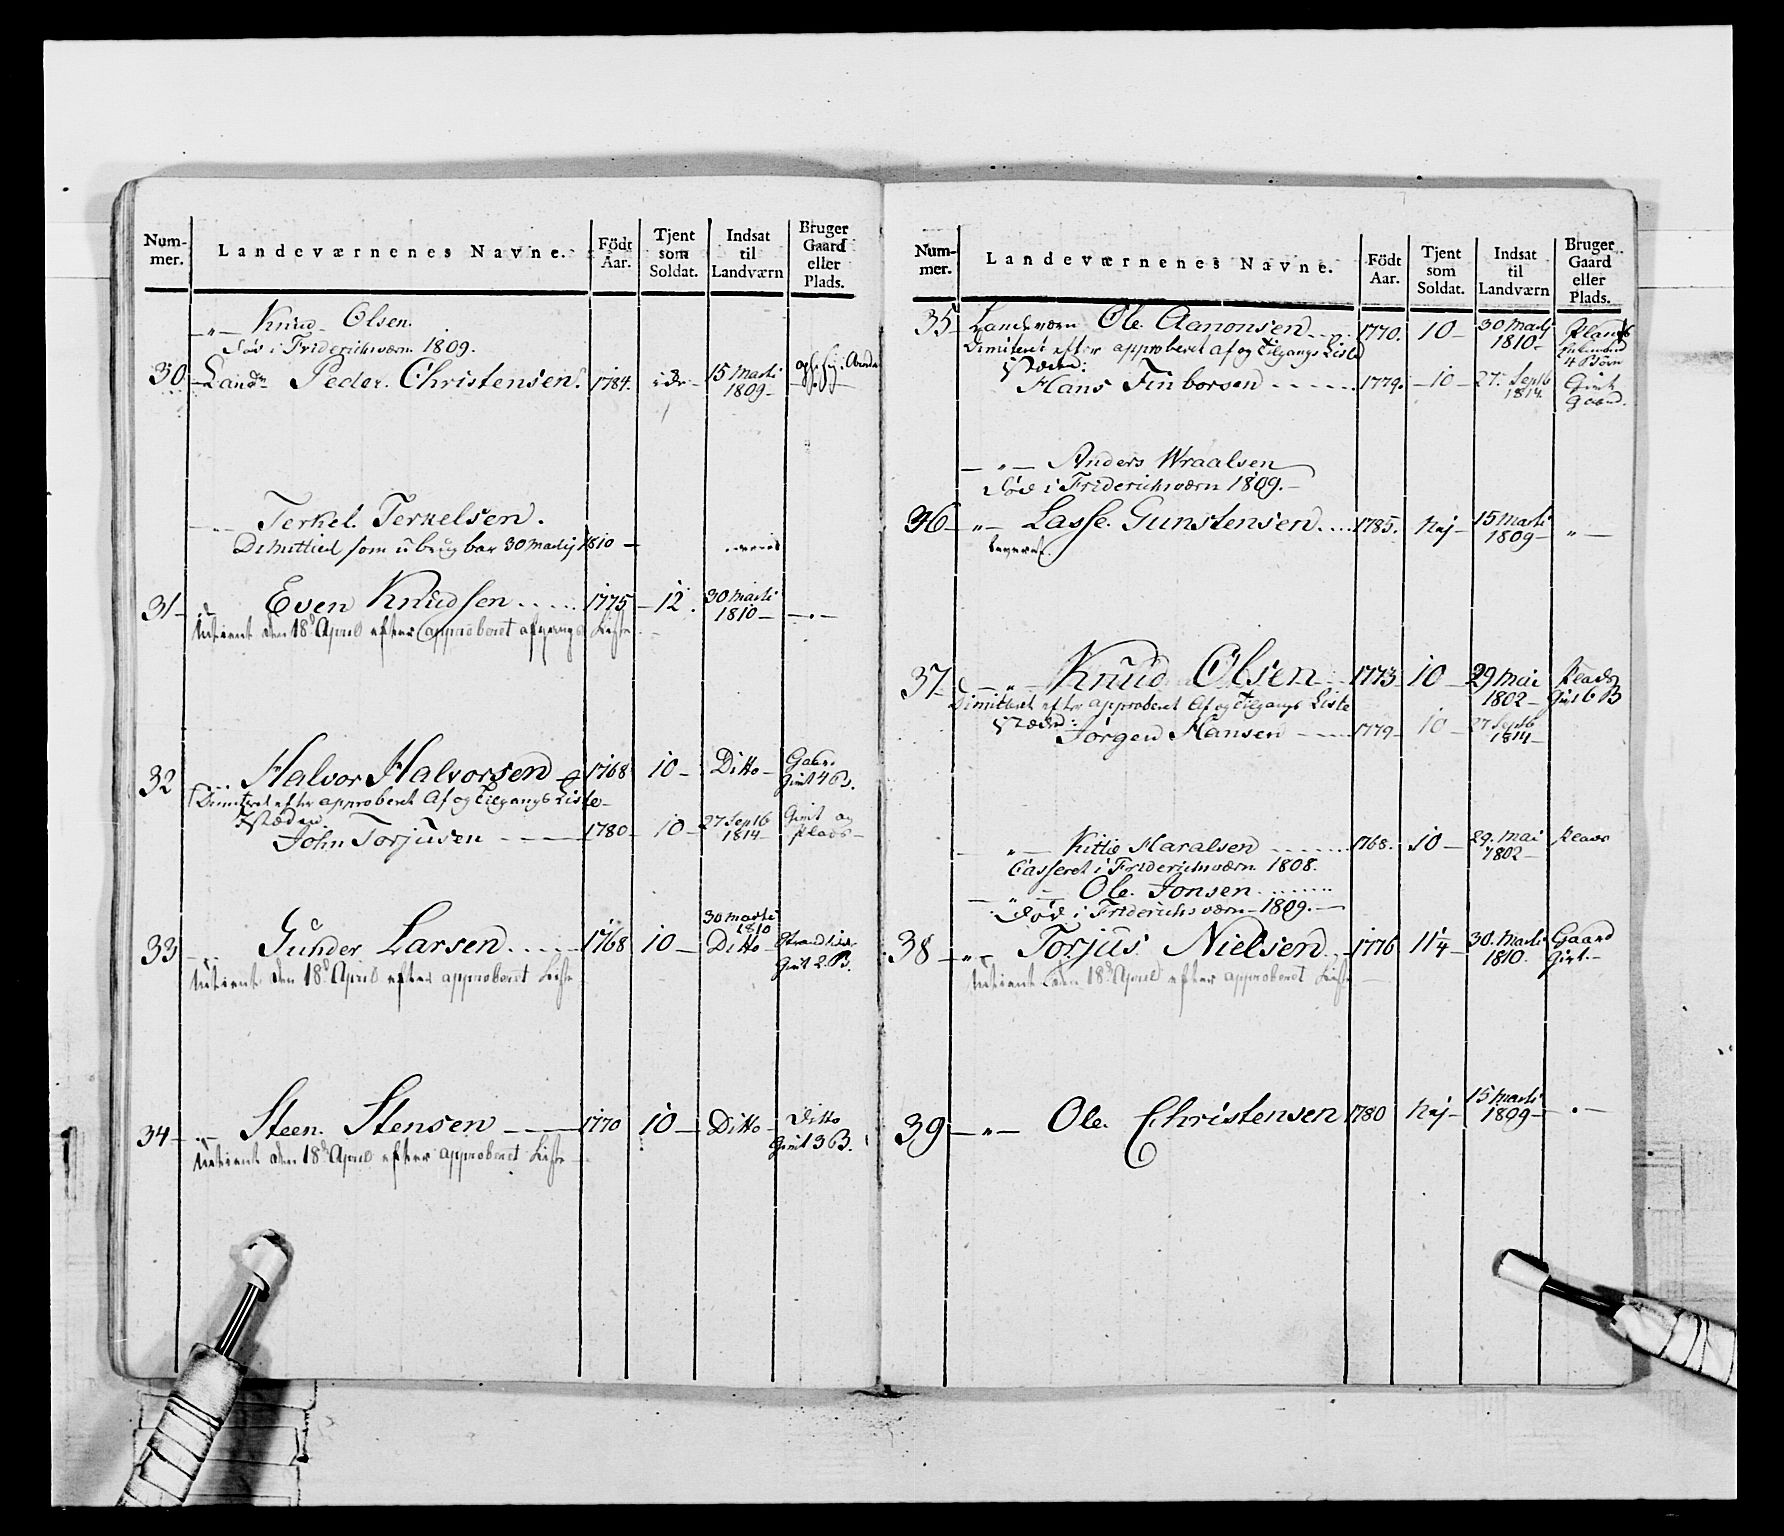 Num-
mer.
Landeværnenes Navne.
Födt
Aar.
Tjent
som
Soldat.
Indsat
til
Landværn
Bruger
Gaard
eller
Plads.
— " — Knud Olsen.
død i Friderichsværn 1809.
30 Landv Peder Christensen. 1784. 15 Marti
1809 —
Terkel Terkelsen.
Dimitted som ubrugbar 30 Martij 1810 —
31 — Even Knudsen ..... 1775 — 12. 30 Marti
1810 — — " —
den 18de April efter approberet afgangs Liste
32 Halvor Halvorsen 1768 10 — Ditto — Gaard
Givt 4 B.
Dimiteret efter approberet Af og Tilgangs Liste —
Istæden
John Torjusen 1780 — 10 — 27 Septb
1814 — Givt og
Plads —
33 Gunder Larsen ..... 1768 10 — 30 Marti
1810
Ditto
Givt 2 B.
den 18de April efter approberet Liste
34 — Steen Stensen 1770 10 — Ditto — Ditto
Givt 3 B.
den 18de April efter approberet Liste
Num-
mer.
Landeværnenes Navne.
Födt
Aar.
Tjent
som
Soldat.
Indsat
til
Landværn
Bruger
Gaard
eller
Plads.
35 Landværn Ole Aanonsen .... 1770. 10 — 30 Martj
1810 — Plads
4 Børn
Dimiteret efter approberet af og Tilgangs Liste
Istæden:
Hans Finborsen 1779. — 10 — 27 Septb
1814. Givt
Gaard.
— " — Anders Wraalsen
død i Friderichsværn 1809. —
36 — " — Lasse Gunstensen .... 1785. Nej — 15 Marti
1809 — " —
37 — " — Knud Olsen 1773 10 — 29 Mai
1802 — Plads
Givt 6 B
Dimitteret efter approberet Af og Tilgangs Liste
Istæden:
Jørgen Hansen 1779 — 10 — 27 Septb
1814 —
— " — Kittil Haralsen 1768. 10 — 29. Mai
1802 — Plads
Casseret i Friderichsværn 1808.
— " — Ole Jonsen
død i Friderichsværn — 1809. —
38 — " — Torjus Nielsen 1776 11 1/4 30. Marti
1810. Gaard
Givt. —
den 18de April efter approberet Liste
39 — " — Ole Christensen 1780 Nej — 15 Marti
1809 — — " —